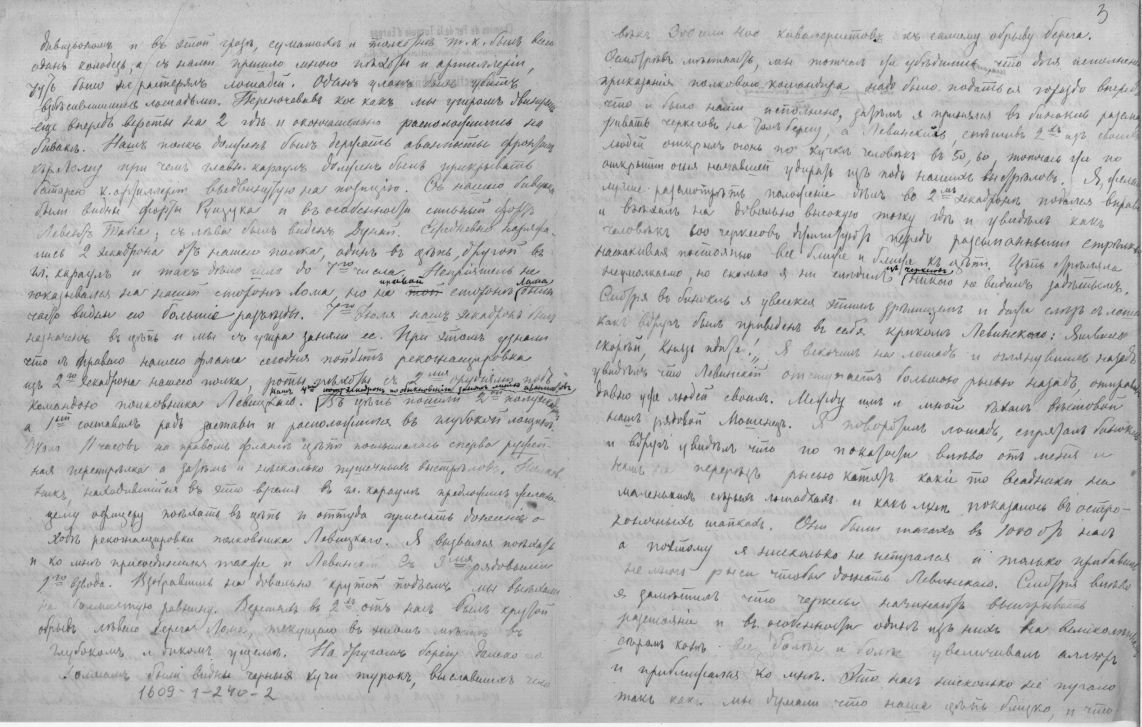 дивизіономъ и въ этой грязи, суматохѣ и толкотнѣ т.к. былъ всего
одинъ колодезь, а съ нами пришло много пѣхоты и артиллеріи,
было не растерять лошадей. Одинъ уланъ былъ убитъ
взбѣсившимися лошадьми. Переночевавъ кое какъ мы утромъ двинулись
еще впередъ версты на 2 гдѣ и окончательно расположились на
бивакъ. Нашъ полкъ долженъ былъ держать аванпосты фронтомъ
къ Лому при чемъ главн. караулъ долженъ былъ прикрывать
батарею к. артиллеріи выдвинутую на позицію. Съ нашего бивуака
были видны форты Рущука и въ особенности сильный фортъ
Левентъ Табія; съ лѣва былъ виденъ Дунай. Ежедневно наряжа-
лись 2 эскадрона отъ нашего полка, одинъ въ цѣпь, другой въ
гл. караулъ и такъ было до 7го числа. Непріятель не
показывался на нашей сторонѣ Лома, но на правой сторонѣ Лома были
часто видны его большіе разъѣзды. 7го Іюля нашъ эскадронъ былъ
назначенъ въ цѣпь и мы съ утра заняли ее. При этомъ узнали
что съ праваго нашего фланга сегодня пойдетъ рекогносцировка
изъ 2го эскадрона нашего полка, роты пѣхоты съ 2мя орудіями подъ
командою полковника Левицкаго. Въ цѣпь пошли 2й полуэскадр.
а 1ый составилъ родъ заставы и расположился въ глубокой лощинѣ.
Около 11 часовъ на правомъ флангѣ цѣпи послышалась сперва ружей-
ная перестрѣлка а затѣмъ и нѣсколько пушечныхъ выстрѣловъ. Полков-
никъ, находившійся въ это время въ гл. караулѣ предложилъ желаю-
щему офицеру поѣхать въ цѣпь и оттуда прислать донесеніе о
ходѣ рекогносцировки полковника Левицкаго. Я вызвался поѣхать
и ко мнѣ присоединился также и Левинскій съ 8мя рядовыми
1го взвода. Взобравшись на довольно крутой подъемъ мы выѣхали
на холмистую равнину. Верстахъ въ 2хъ отъ насъ былъ крутой
обрывъ лѣваго берега Лома, текущаго въ этомъ мѣстѣ въ
глубокомъ и дикомъ ущельѣ. На другомъ берегу далеко по
холмамъ были видны черныя кучи турокъ, выславшихъ
1609-1-240-2
3
400 кавалеристовъ къ самому обрыву берега.
Осмотрѣвъ мѣстность, мы тотчасъ же убѣдились что для исполненія
приказанія полковаго командира надо было податься гораздо впередъ
что и было нами исполнено, затѣмъ я принялся въ бинокль разсма-
тривать черкесовъ на томъ берегу, а Левинскій спѣшивъ 2хъ изъ своихъ
людей открылъ огонь по кучкѣ человѣкъ въ 50, 60, тотчасъ же по
открытіи огня начавшей удирать изъ подъ нашихъ выстрѣловъ. Я, желая
лучше разсмотрѣть положеніе дѣлъ во 2мъ эскадронѣ подался вправо
и въѣхалъ на довольно высокую точку гдѣ и увидѣлъ какъ
человѣкъ 600 черкесовъ передъ разсыпанными стрѣлками
наскакивая постоянно все ближе и ближе къ цѣпи. Цѣпь стрѣляла
неумолкаемо но сколько я ни слѣдилъ изъ черкесовъ никого не видалъ задѣтымъ.
Смотря въ бинокль я увлекся этимъ зрѣлищемъ и даже слѣзъ съ лошади
какъ вдругъ былъ приведенъ въ себя крикомъ Левинскаго:
скорѣй, Князь, назадъ! Я вскочилъ на лошадь и оглянувшись назадъ
увидѣлъ что Левинскій отступаетъ большою рысью назадъ отправивъ
давно уже людей своихъ. Между имъ и мной ѣхалъ вѣстовой
нашъ рядовой. Я поворотилъ лошадь, спряталъ бинокль
и вдругъ увидѣлъ что по показаніи влѣво отъ меня и
намъ на перерѣзъ рысью катятъ какіе то всадники на
маленькихъ сѣрыхъ лошадкахъ и какъ мнѣ показалось въ остро-
конечныхъ шапкахъ. Они были шагахъ въ 1000 отъ насъ
а поэтому я нисколько не испугался и только прибавилъ
не много рыси чтобы догнать Левинскаго. Смотря влѣво
я замѣтилъ что черкесы начинаютъ выигрывать
разстояніе и въ особенности одинъ изъ нихъ на великолѣпномъ
сѣромъ конѣ все болѣе и болѣе увеличивалъ аллюръ
и приближался ко мнѣ. Это насъ нисколько не пугало
такъ какъ мы думали что наша цѣпь близко, и что